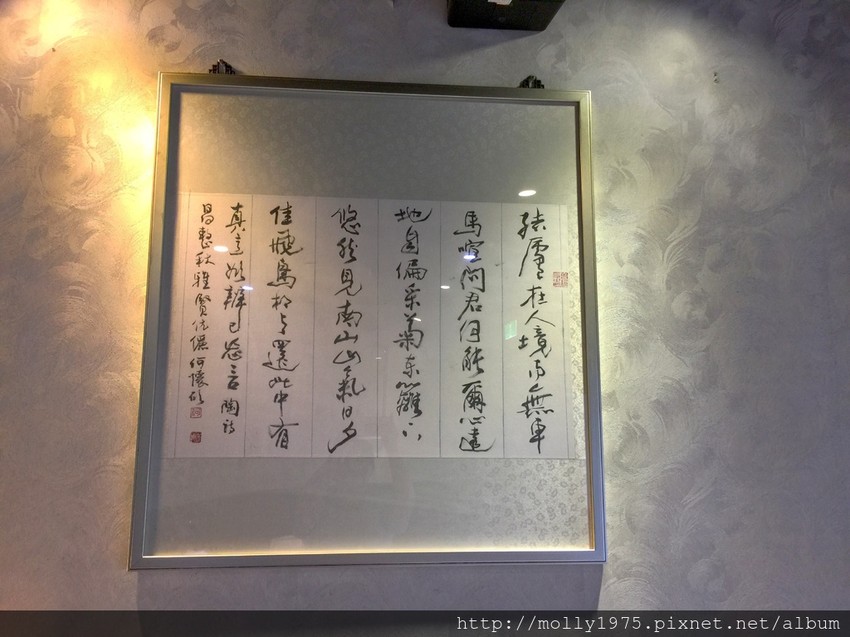 結廬在人境而無車
馬喧問君何能爾心遠
地自偏采菊東籬下
悠然見南山山氣日夕
佳飛鳥相與還此中有
真意欲辨已忘言 陶詩
昌整秋雅賢伉儷何懷碩
http://molly1975.pixnet.net/album